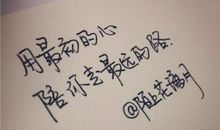 用最初的心
陪你走最远的路.
@陌上芒满月